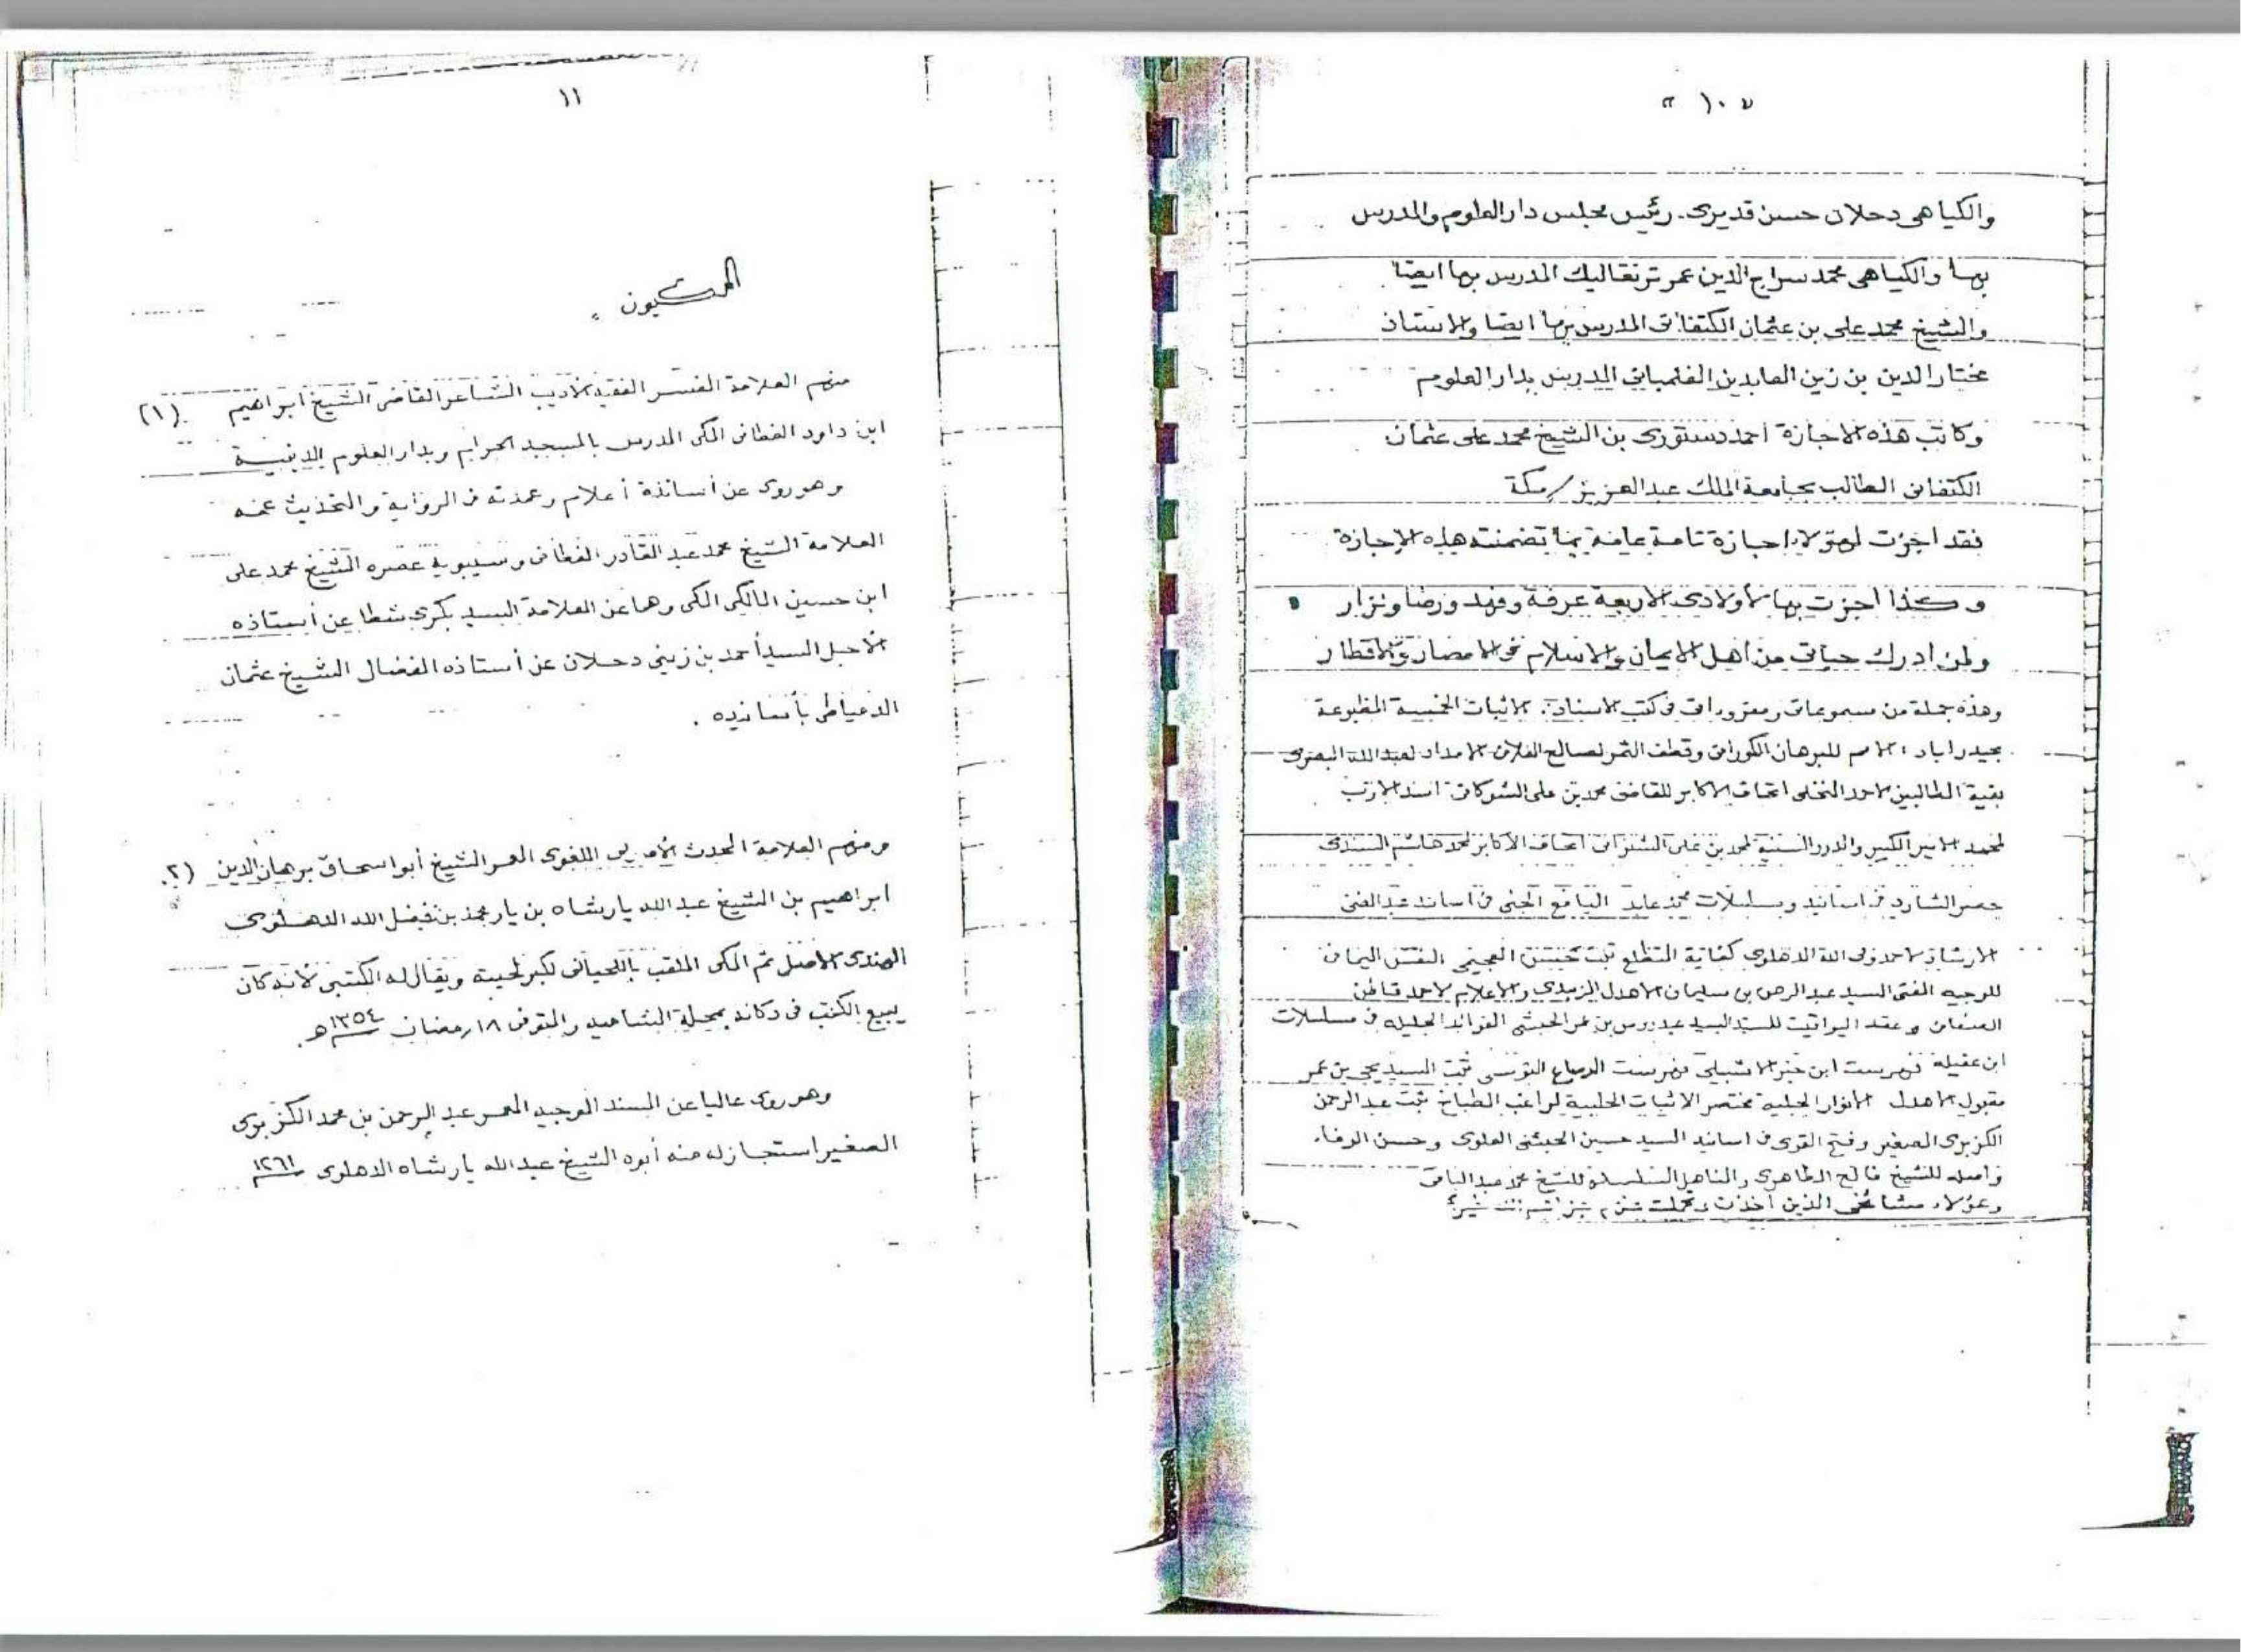 ١٠
والكياهى دحلان حسن قديرى. رئيس مجلس دار العلوم والمدرس
بها والكياهى محمد سراج الدين عمر ترنقاليك المدرس بها ايضا
والشيخ محمد على بن عثمان الكنفانى المدرس بها ايضا والاستاذ
مختار الدين بن زين العابدين الفلمبانى المدرس بدار العلوم
وكاتب هذه الاجازة أحمد دستورى بن الشيخ محمد على عثمان
الكنفانى الطالب بجامعة الملك عبد العزيز / مكة
فقد اجزت لهؤلاء اجازة تامة عامة بما تضمنته هذه الإجازة
وكذا اجزت بها لأولادى الاربعة عرفة وفهد ورضا ونزار
ولمن ادرك حياتى من اهل الايمان والاسلام فى الامصار والاقطار
وهذه جملة من مسموعاتى ومقروءاتى فى كتب الاسناد. الاثبات الخمسة المطبوعة
بحيدراباد : الامم للبرهان الكورانى وقطف الثمر لصالح الفلانى الامداد لعبد الله البصرى
بغية الطالبين لاحمد النخلى اتحاف الاكابر للقاضى محمد بن على الشوكانى اسد الارب
لمحمد الامير الكبير والدرر السنية لمحمد بن على السنوسى اتحاف الأكابر لمحمد هاشم السندى
حصر الشارد فى اسانيد ومسلسلات محمد عابد اليانع الجنى فى اسانيد عبد الغنى
الارشاد لاحمد ولى الله الدهلوى كفاية المتطلع ثبت حسن العجيمى النفس اليمانى
للوجيه المفتى السيد عبد الرحمن بن سليمان الاهدل الزبيدى والاعلام لاحمد قاطن
الصنعانى وعقد اليواقيت للسيد عيدروس بن عمر الحبشى الفوائد الجليلة فى مسلسلات
ابن عقيلة فهرست ابن خير الاشبيلى فهرست الرصاع التونسى ثبت السيد يحيى بن عمر
مقبول الاهدل الانوار الجلية مختصر الاثبات الحلبية لراغب الطباخ ثبت عبد الرحمن
الكزبرى الصغير وفتح القوى فى اسانيد السيد حسين الحبشى العلوى وحسن الوفاء
واصله للشيخ فالح الظاهرى والمناهل السلسلة للشيخ محمد عبد الباقى
وهؤلاء مشائخى الذين أخذت وتحملت
١١
المكيون
(١) منهم العلامة المفسر الفقيه الأديب الشاعر القاضى الشيخ ابراهيم
ابن داود الفطانى المكى المدرس بالمسجد الحرام وبدار العلوم الدينية
وهو روى عن أساتذة أعلام وعمدته فى الرواية والتحديث عمه
العلامة الشيخ محمد عبد القادر الفطانى وسيبويه عصره الشيخ محمد على
ابن حسين المالكى المكى وهما عن العلامة السيد بكرى شطا عن أستاذه
الأجل السيد أحمد بن زيني دحلان عن أستاذه المفضال الشيخ عثمان
الدمياطى بأسانيده .
(٢) ومنهم العلامة المحدث اللغوى المعمر الشيخ أبو اسحاق برهان الدين
ابراهيم بن الشيخ عبد الله يارشاه بن يار محمد بن فيضل الله الدهلوى
الهندى الاصل ثم المكى الملقب باللحيانى لكبر لحيته ويقال له الكتبى لأنه كان
يبيع الكتب فى دكانه بمحلة الشامية والمتوفى ١٨ رمضان ١٣٥٤ هـ.
وهو روى عاليا عن المسند الوجيه المعمر عبد الرحمن بن محمد الكزبرى
الصغير استجاز له منه أبوه الشيخ عبد الله يارشاه الدهلوى ١٢٦١